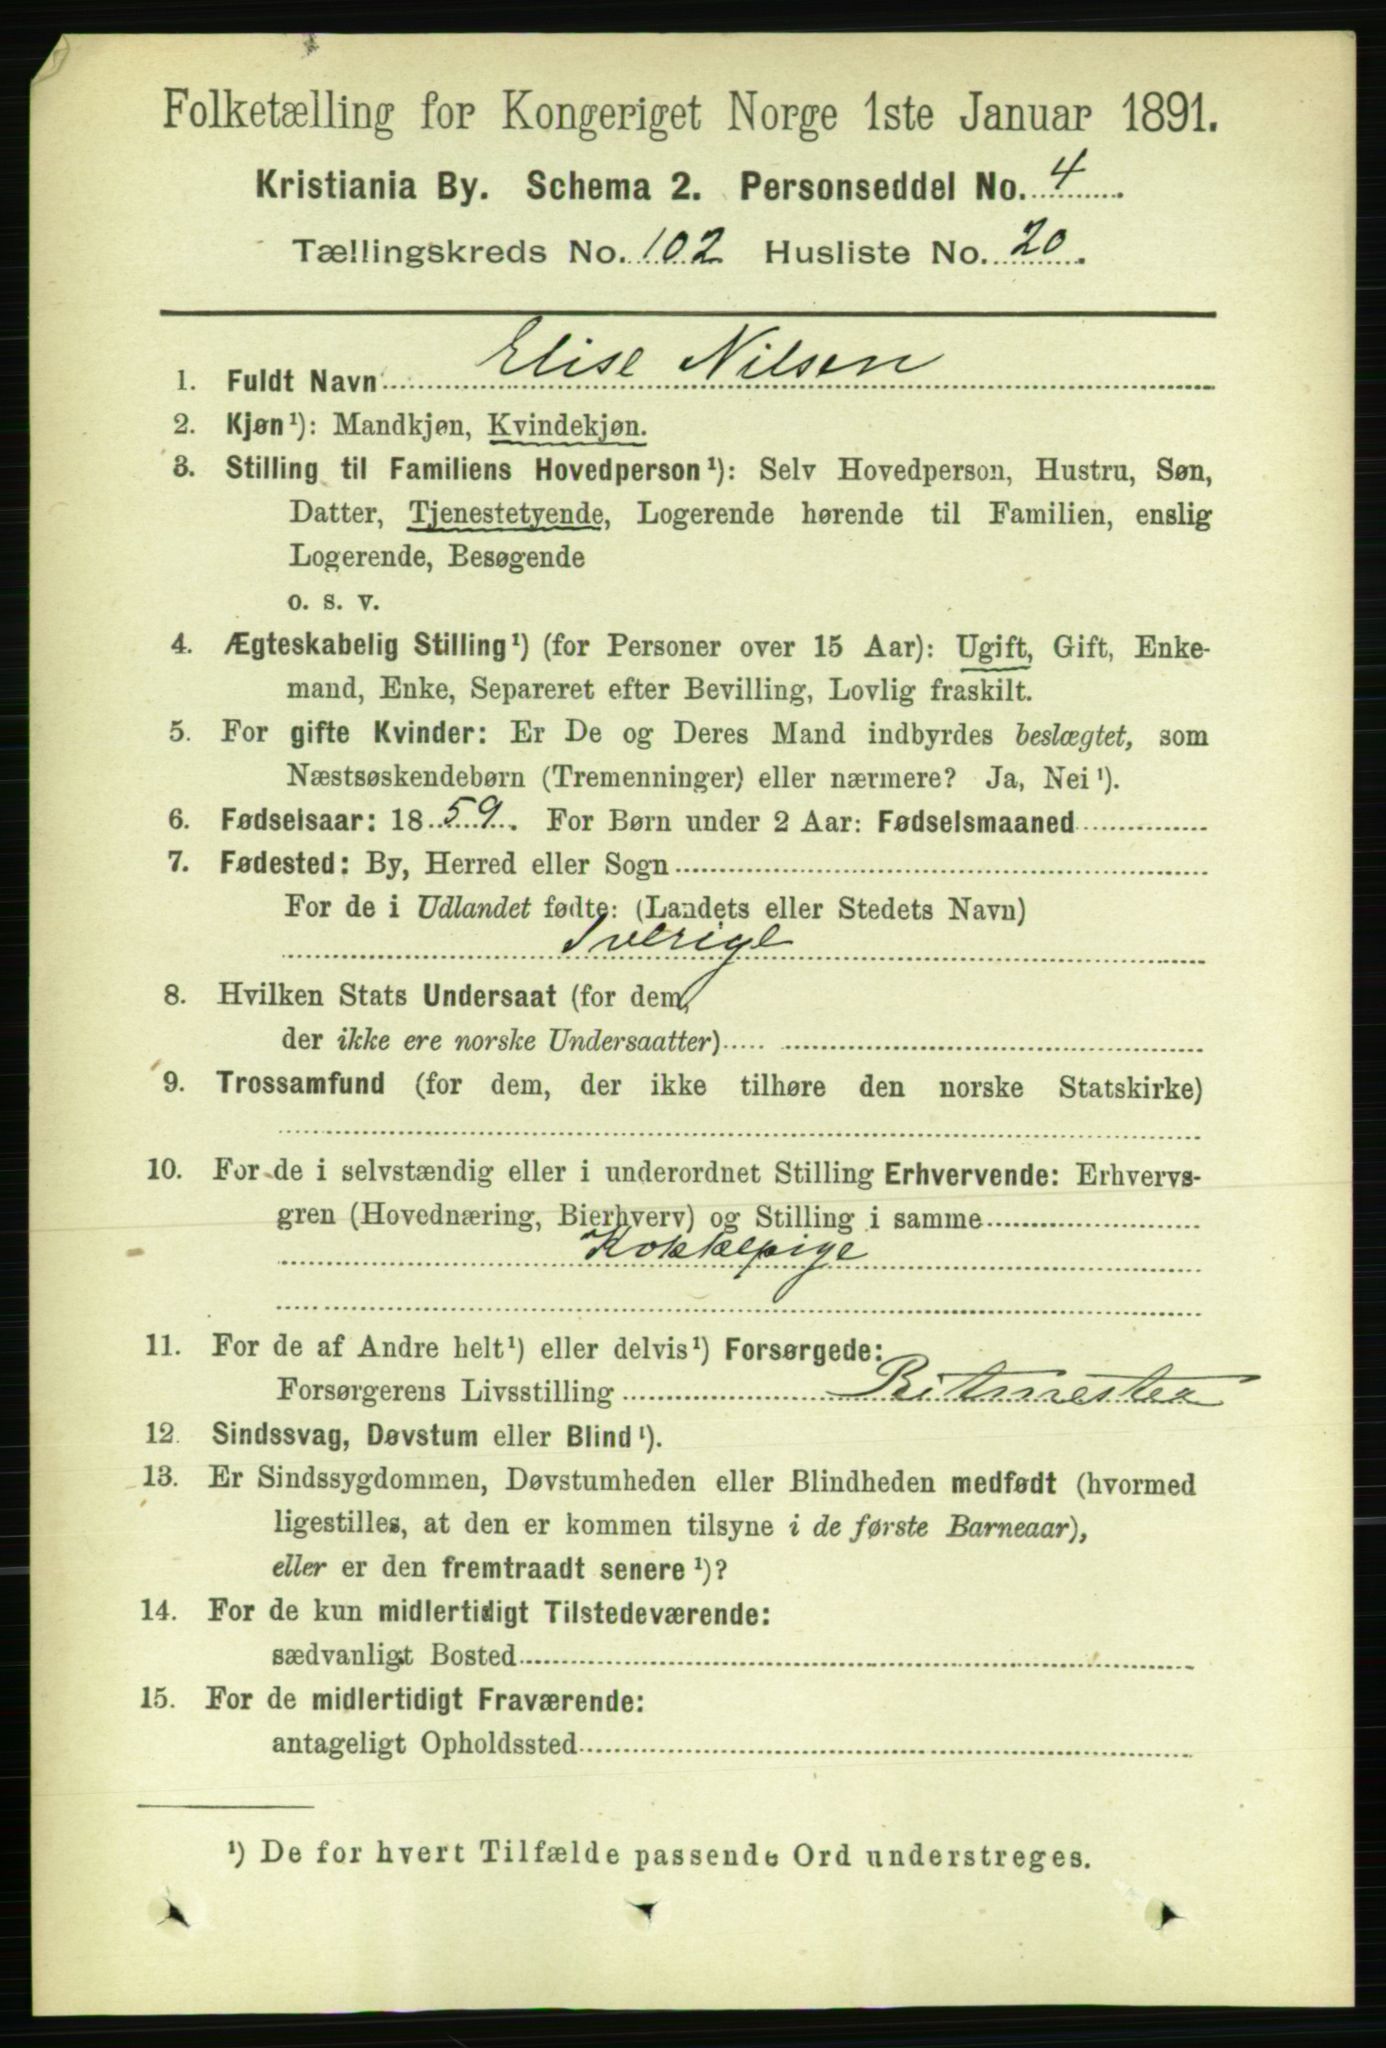 Folketælling for Kongeriget Norge 1ste Januar 1891.
Kristiania By. Schema 2. Personseddel No. 4
Tællingskreds No. 102 Husliste No. 20
1. Fuldt Navn Elise Nilsen
2. Kjøn¹): Mandkjøn, Kvindekjøn.
3. Stilling til Familiens Hovedperson¹): Selv Hovedperson, Hustru, Søn,
Datter, Tjenestetyende, Logerende hørende til Familien, enslig
Logerende, Besøgende
o. s. v.
4. Ægteskabelig Stilling¹) (for Personer over 15 Aar): Ugift, Gift, Enke-
mand, Enke, Separeret efter Bevilling, Lovlig fraskilt.
5. For gifte Kvinder: Er De og Deres Mand indbyrdes beslægtet, som
Næstsøskendebørn (Tremenninger) eller nærmere? Ja, Nei¹).
6. Fødselsaar: 1859. For Børn under 2 Aar: Fødselsmaaned
7. Fødested: By, Herred eller Sogn
For de i Udlandet fødte: (Landets eller Stedets Navn)
Sverige
8. Hvilken Stats Undersaat (for dem,
der ikke ere norske Undersaatter)
9. Trossamfund (for dem, der ikke tilhøre den norske Statskirke)
10. For de i selvstændig eller i underordnet Stilling Erhvervende: Erhvervs-
gren (Hovednæring, Bierhverv) og Stilling i samme
Kokkepige
11. For de af Andre helt¹) eller delvis¹) Forsørgede:
Forsørgerens Livsstilling Ritmester
12. Sindssvag, Døvstum eller Blind¹).
13. Er Sindssygdommen, Døvstumheden eller Blindheden medfødt (hvormed
ligestilles, at den er kommen tilsyne i de første Barneaar),
eller er den fremtraadt senere¹)?
14. For de kun midlertidigt Tilstedeværende:
sædvanligt Bosted
15. For de midlertidigt Fraværende:
antageligt Opholdssted
¹) De for hvert Tilfælde passende Ord understreges.